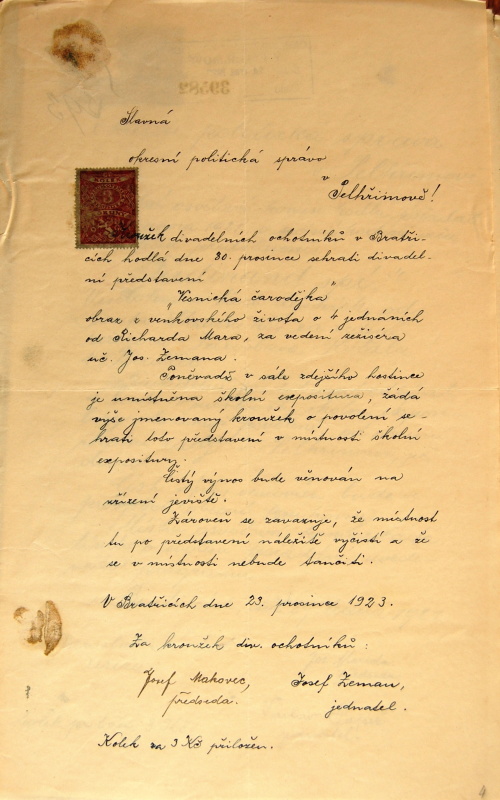 39582
Slavná
okresní politická správo
v
Pelhřimově!
KOLEK
3
Kroužek divadelních ochotníků v Bratři-
cích hodlá dne 30. prosince sehrati divadel-
ní představení
„Vesnická čarodějka"
obraz z venkovského života o 4 jednáních
od Richarda Mara, za vedení režiséra
uč. Jos. Zemana.
Poněvadž v sále zdejšího hostince
je umístněna školní expositura, žádá
výše jmenovaný kroužek o povolení se-
hrati toto představení v místnosti školní
expositury.
Čistý výnos bude věnován na
zřízení jeviště.
Zároveň se zavazuje, že místnost
tu po představení náležitě vyčistí a že
se v místnosti nebude tančiti.
V Bratřicích dne 23. prosince 1923.
Za kroužek div. ochotníků:
Josef Makovec,
předseda.
Josef Zeman,
jednatel.
Kolek za 3 Kč přiložen.